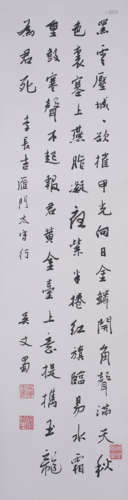 黑雲壓城々欲摧甲光向日金鱗開角聲滿天秋
色裏塞上燕脂凝夜紫半捲紅旗臨易水霜
重鼓寒聲不起報君黃金臺上意提攜玉龍
為君死 李長吉雁門太守行 吳文蜀